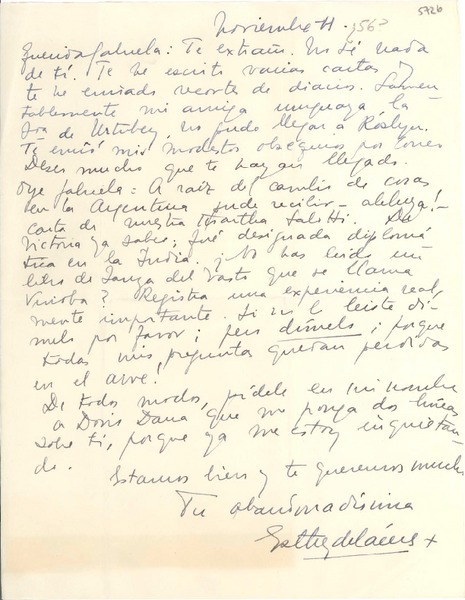 5726
Noviembre 11. ¿56?
Querida Gabuela: Te extraño. No sé nada
de ti. Te he escrito varias cartas y
te he enviado recorte de diarios. Lamen
tablemente mi amiga uruguaya la
Sra de Urtubey, no pudo llegar a Roslyn.
Te envió mis modestos obsequios por correo
Deseo mucho que te hayan llegado.
Oye Gabuela: A raiz del cambio de cosas
en la Argentina pude recibir - aleluya! -
carta de nuestra Martha Salotti. De
Victoria ya sabes; fué designada diplomá
tica en la India. ¿No has leido un
libro de Lanza del Vasto que se llama
Vinoba? Registra una experiencia real
mente importante. Si no lo leiste dí
melo por favor; pero dímelo; porque
todas mis preguntas quedan perdidas
en el aire.
De todos modos, pídele en mi nombre
a Doris Dana que me ponga dos líneas
sobre ti, porque ya me estoy inquietan
do.
Estamos bien y te queremos mucho
Tu abandonadísima
Esther de Cáceres +